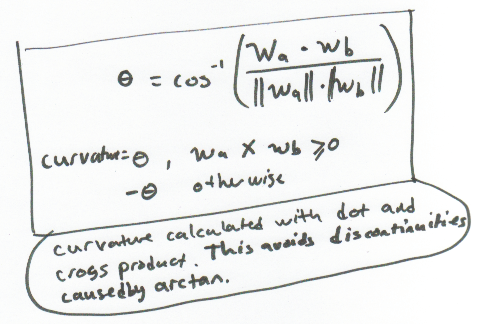 θ = cos⁻¹ ( wa · wb / ||wa|| · ||wb|| )
curvature = θ , wa × wb ≥ 0
-θ otherwise
curvature calculated with dot and
cross product. This avoids discontinuities
caused by arctan.